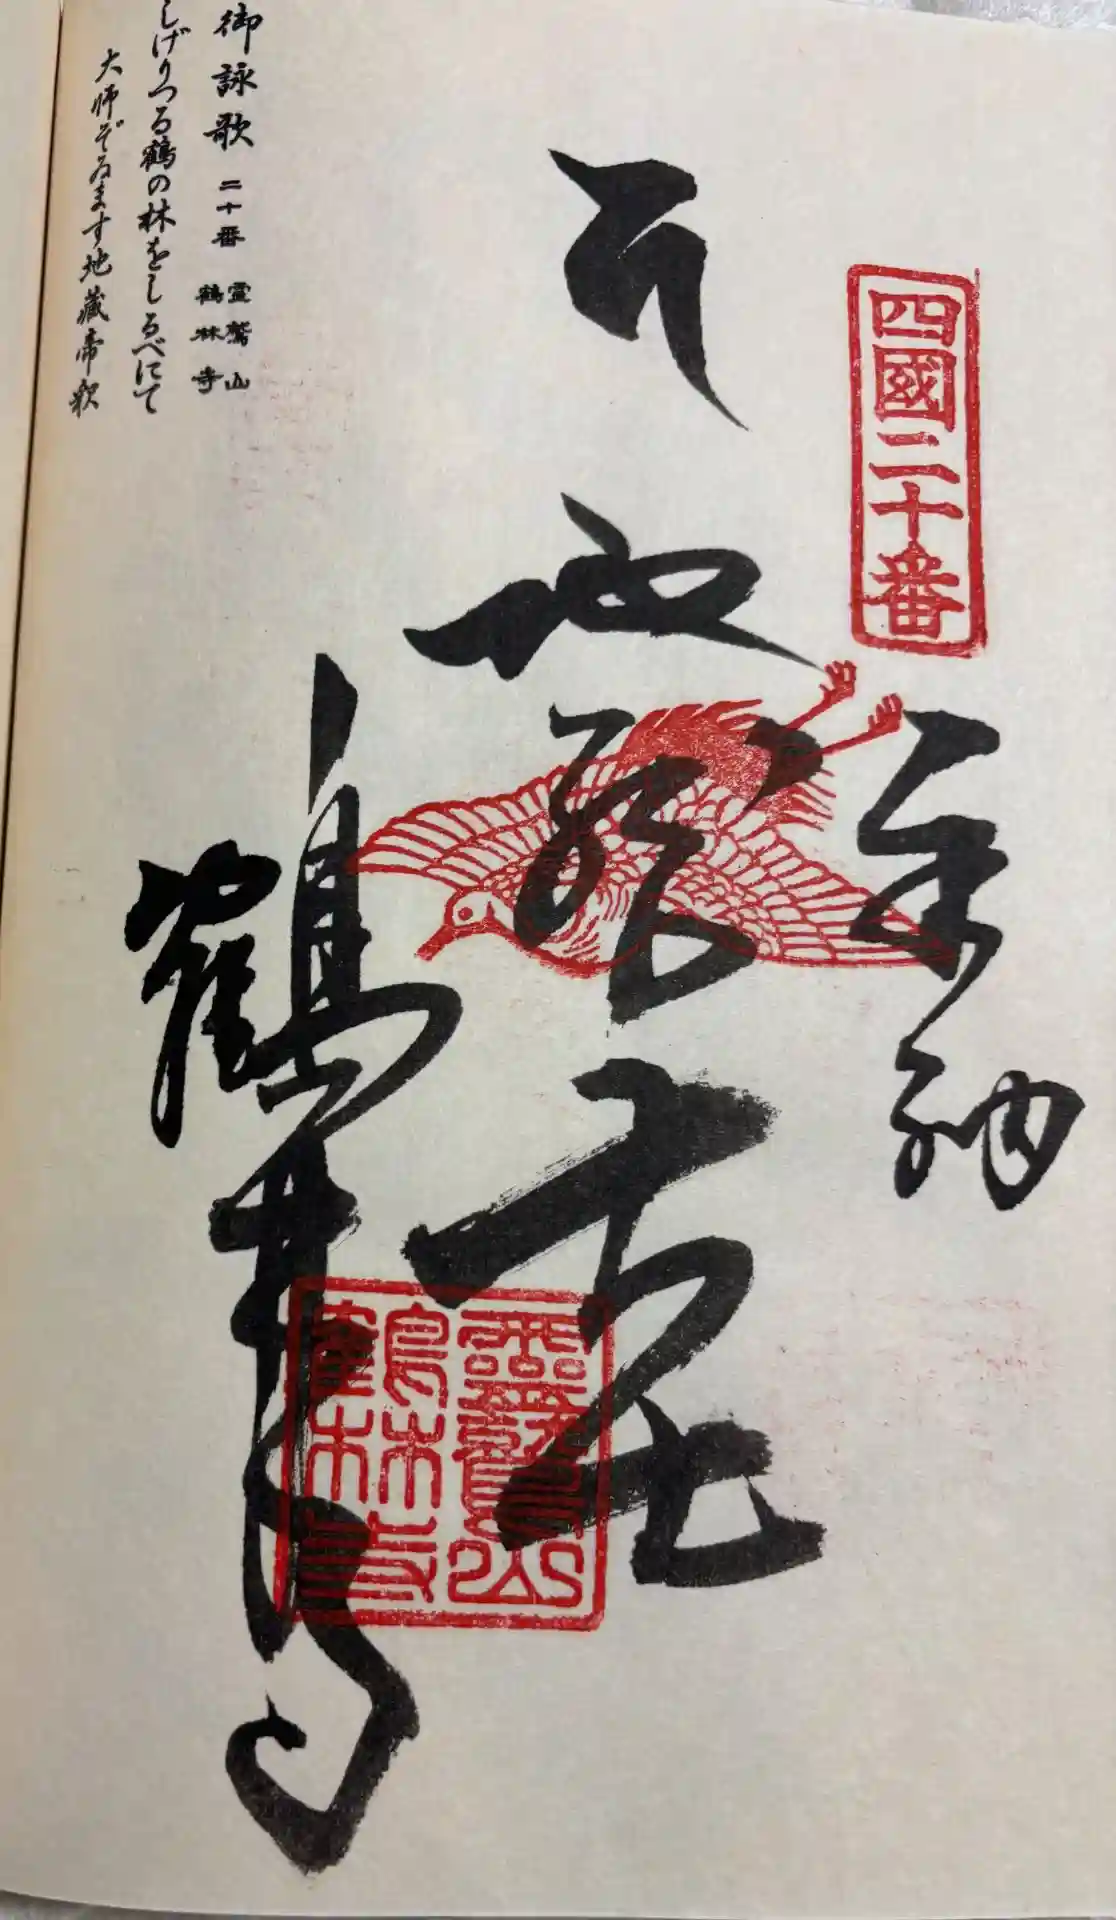 四國二十番
奉納
地蔵
鶴林寺
靈鷲山
鶴林寺
御詠歌 二十番 霊鷲山 鶴林寺
しげりつる鶴の林をしるべにて
大師ぞゐます地藏帝釈